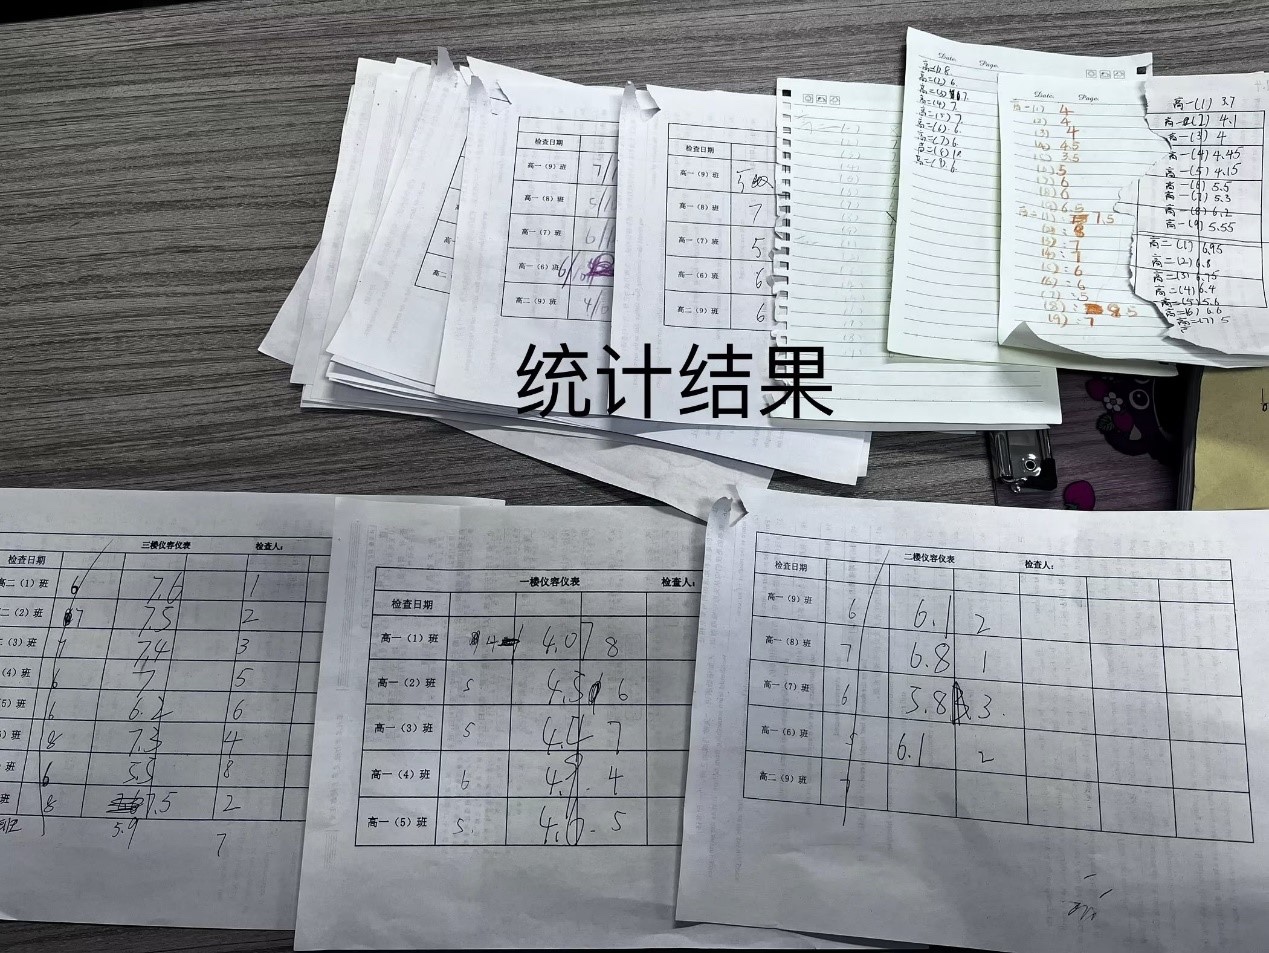 检查日期
高一（9）班 7/1
高一（8）班 5/1
高一（7）班 6/1
高一（6）班
高二（9）班 4/
检查日期
高一（9）班
高一（8）班 7
高一（7）班 5
高一（6）班 6
高二（9）班 6
Date. Page.
高二(2) 6
高二(4) 7
高二(5) 7
高二(6) 6
高二(7) 6
Date. Page.
高一(1) 4
(2) 4
(3) 4
(4) 4.5
(5) 3.5
5
6
6
6.5
7.5
(2): 8
(3): 7
(4): 7
(5): 6
(6): 6
(7): 5
(8): 8.5
(9): 7
高一(1) 3.7
高一(2) 4.1
高一(3) 4
高一(4) 4.45
高一(5) 4.15
高一(6) 5.5
高一(7) 5.3
高一(8) 6.2
高一(9) 5.55
高二(1) 6.95
高二(2) 6.8
高二(3) 6.75
高二(4) 6.4
高二(5) 5.6
高二(6) 6.6
高二(7) 5
统计结果
三楼仪容仪表 检查人：
检查日期
高二（1）班 6 7.6 1
二（2）班 7 7.5 2
（3）班 7 7.4 3
（4）班 6 7 5
5）班 6 6.2 6
）班 8 7.3 4
班 6 5.5 8
班 8 7.5 2
班 5.9 7
一楼仪容仪表 检查人：
检查日期
高一（1）班 4 4.07 8
高一（2）班 5 4.5 6
高一（3）班 5 4.4 7
高一（4）班 6 4.9 4
高一（5）班 5. 4.6 5
二楼仪容仪表 检查人：
检查日期
高一（9）班 6 6.1 2
高一（8）班 7 6.8 1
高一（7）班 6 5.8 3.
高一（6）班 5 6.1 2
高二（9）班 7